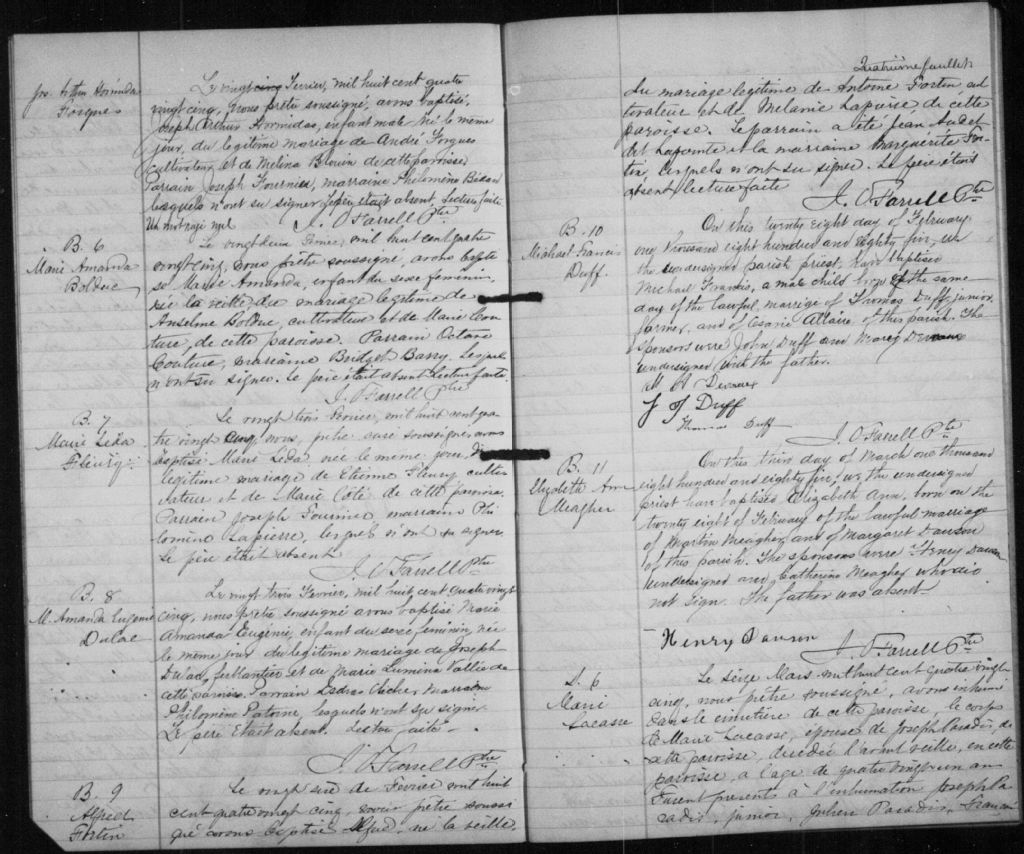 Jos. Arthur Hormidas
Forgues
Le vingt cinq Fevrier, mil huit cent quatre
vingt cinq, nous prêtre soussigné, avons baptisé,
Joseph Arthur Hormidas, enfant male né le meme
jour, du legitime mariage de André Forgues
cultivateur et de Melina Blouin de cette paroisse
Parrain Joseph Fournier, marraine Philomène
lesquels n'ont su signer le père était absent, Lecture faite
Un mot rayé nul J. O'Farrell Ptre
B. 6
Marie Amanda
Bolduc
Le vingt deux Fevrier, mil huit cent quatre
vingt cinq, nous prêtre soussigné, avons baptisé
Marie Amanda, enfant du sexe feminin,
née la veille du mariage legitime de
Anselme Bolduc, cultivateur et de Marie Cou
ture, de cette paroisse. Parrain Octave
Couture, marraine Bridget Barry. Lesquels
n'ont su signer. Le père était absent Lecture faite.
J. O'Farrell Ptre
B. 7
Marie Léda
Fleury
Le vingt trois Fevrier, mil huit cent qua
tre vingt cinq, nous, prêtre soussigné avons
baptisé Marie Léda née le meme jour, du
legitime mariage de Etienne Fleury culti
vateur et de Marie Coté de cette paroisse.
Parrain Joseph Fournier marraine Phi
lomène Lapierre, lesquels n'ont su signer
Le père était absent
J. O'Farrell Ptre
B. 8
M. Amanda Eugenie
Dulac
Le vingt trois Fevrier, mil huit cent quatre vingt
cinq, nous prêtre soussigné avons baptisé Marie
Amanda Eugénie, enfant du sexe feminin, née
le meme jour du legitime mariage de Joseph
Dulac, ferblantier et de Marie Lumina Vallée de
cette paroisse. Parrain marraine
Philomène lesquels n'ont su signer
Le père était absent. Lecture faite
J. O'Farrell Ptre
B. 9
Alfred
Fortin
Le vingt six de Fevrier mil huit
cent quatre vingt cinq, prêtre soussi
gné avons baptisé Alfred, né la veille,
Quatrième feuillet
du mariage legitime de Antoine Fortin, cul
tivateur et de Mélanie Lapierre de cette
paroisse. Le parrain a été Jean Audet
dit Lapointe et la marraine Marguérite For
tin, lesquels n'ont su signer. Le père était
absent lecture faite
J. O'Farrell Ptre
B. 10
Michael Francis
Duff.
On this twenty eight day of February
one thousand eight hundred and eighty five, we
the undersigned parish priest, have baptised
Michael Francis, a male child born of the same
day of the lawful marriage of Thomas Duff junior
farmer, and of Cesarie Allaire of this parish. The
sponsors were John Duff and Mary Devreaux
undersigned with the father.
M A Devreaux
J J Duff
Thomas Duff
J. O'Farrell Ptre
B. 11
Elizabeth Ann
Meagher
On this third day of March one thousand
eight hundred and eighty five, we the undersigned
priest have baptised Elizabeth Ann, born on the
twenty eight of February of the lawful marriage
of Martin Meagher and of Margaret Dawson
of this parish. The sponsors were Henry Dawson
undersigned and Catherine Meagher who did
not sign. The father was absent
Henry Dawson
J. O'Farrell Ptre
S. 6
Marie
Lacasse
Le seize Mars mil huit cent quatre vingt
cinq, nous prêtre soussigné, avons inhumé
dans le cimetière de cette paroisse, le corps
de Marie Lacasse, épouse de Joseph Paradis, de
cette paroisse, decedée l'avant veille, en cette
paroisse, a l'age de quatre vingt un an
Furent presents à l'inhumation Joseph Pa
radis, junior, Julien Paradis, François